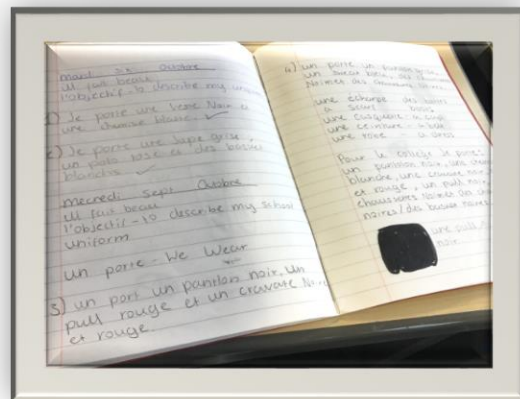 mardi six Octobre
il fait beau
l'objectif - to describe my
1) Je porte une Veste Noir et
une chemise blanc.
2) Je porte une Jupe grise,
un polo rose et des bottes
blanchs
mecredi sept Octobre
il fait beau
l'objectif - to describe my school
uniform
un porte - We Wear
3) un port un panilon noir, un
pull rouge et un cravate Noire
et rouge.
4) un porte un panilon grise,
un
Noires des chaussures Noires.
une écharpe des bottes
a scarf boots
une casquette a cap
une ceinture - a belt
une robe a dress
Pour le collège je porte
un panilon noir, une
blanche, une cravate noir
et rouge, un pull noir,
chaussettes Noires des
noires/des baskets noires
une pull
noir